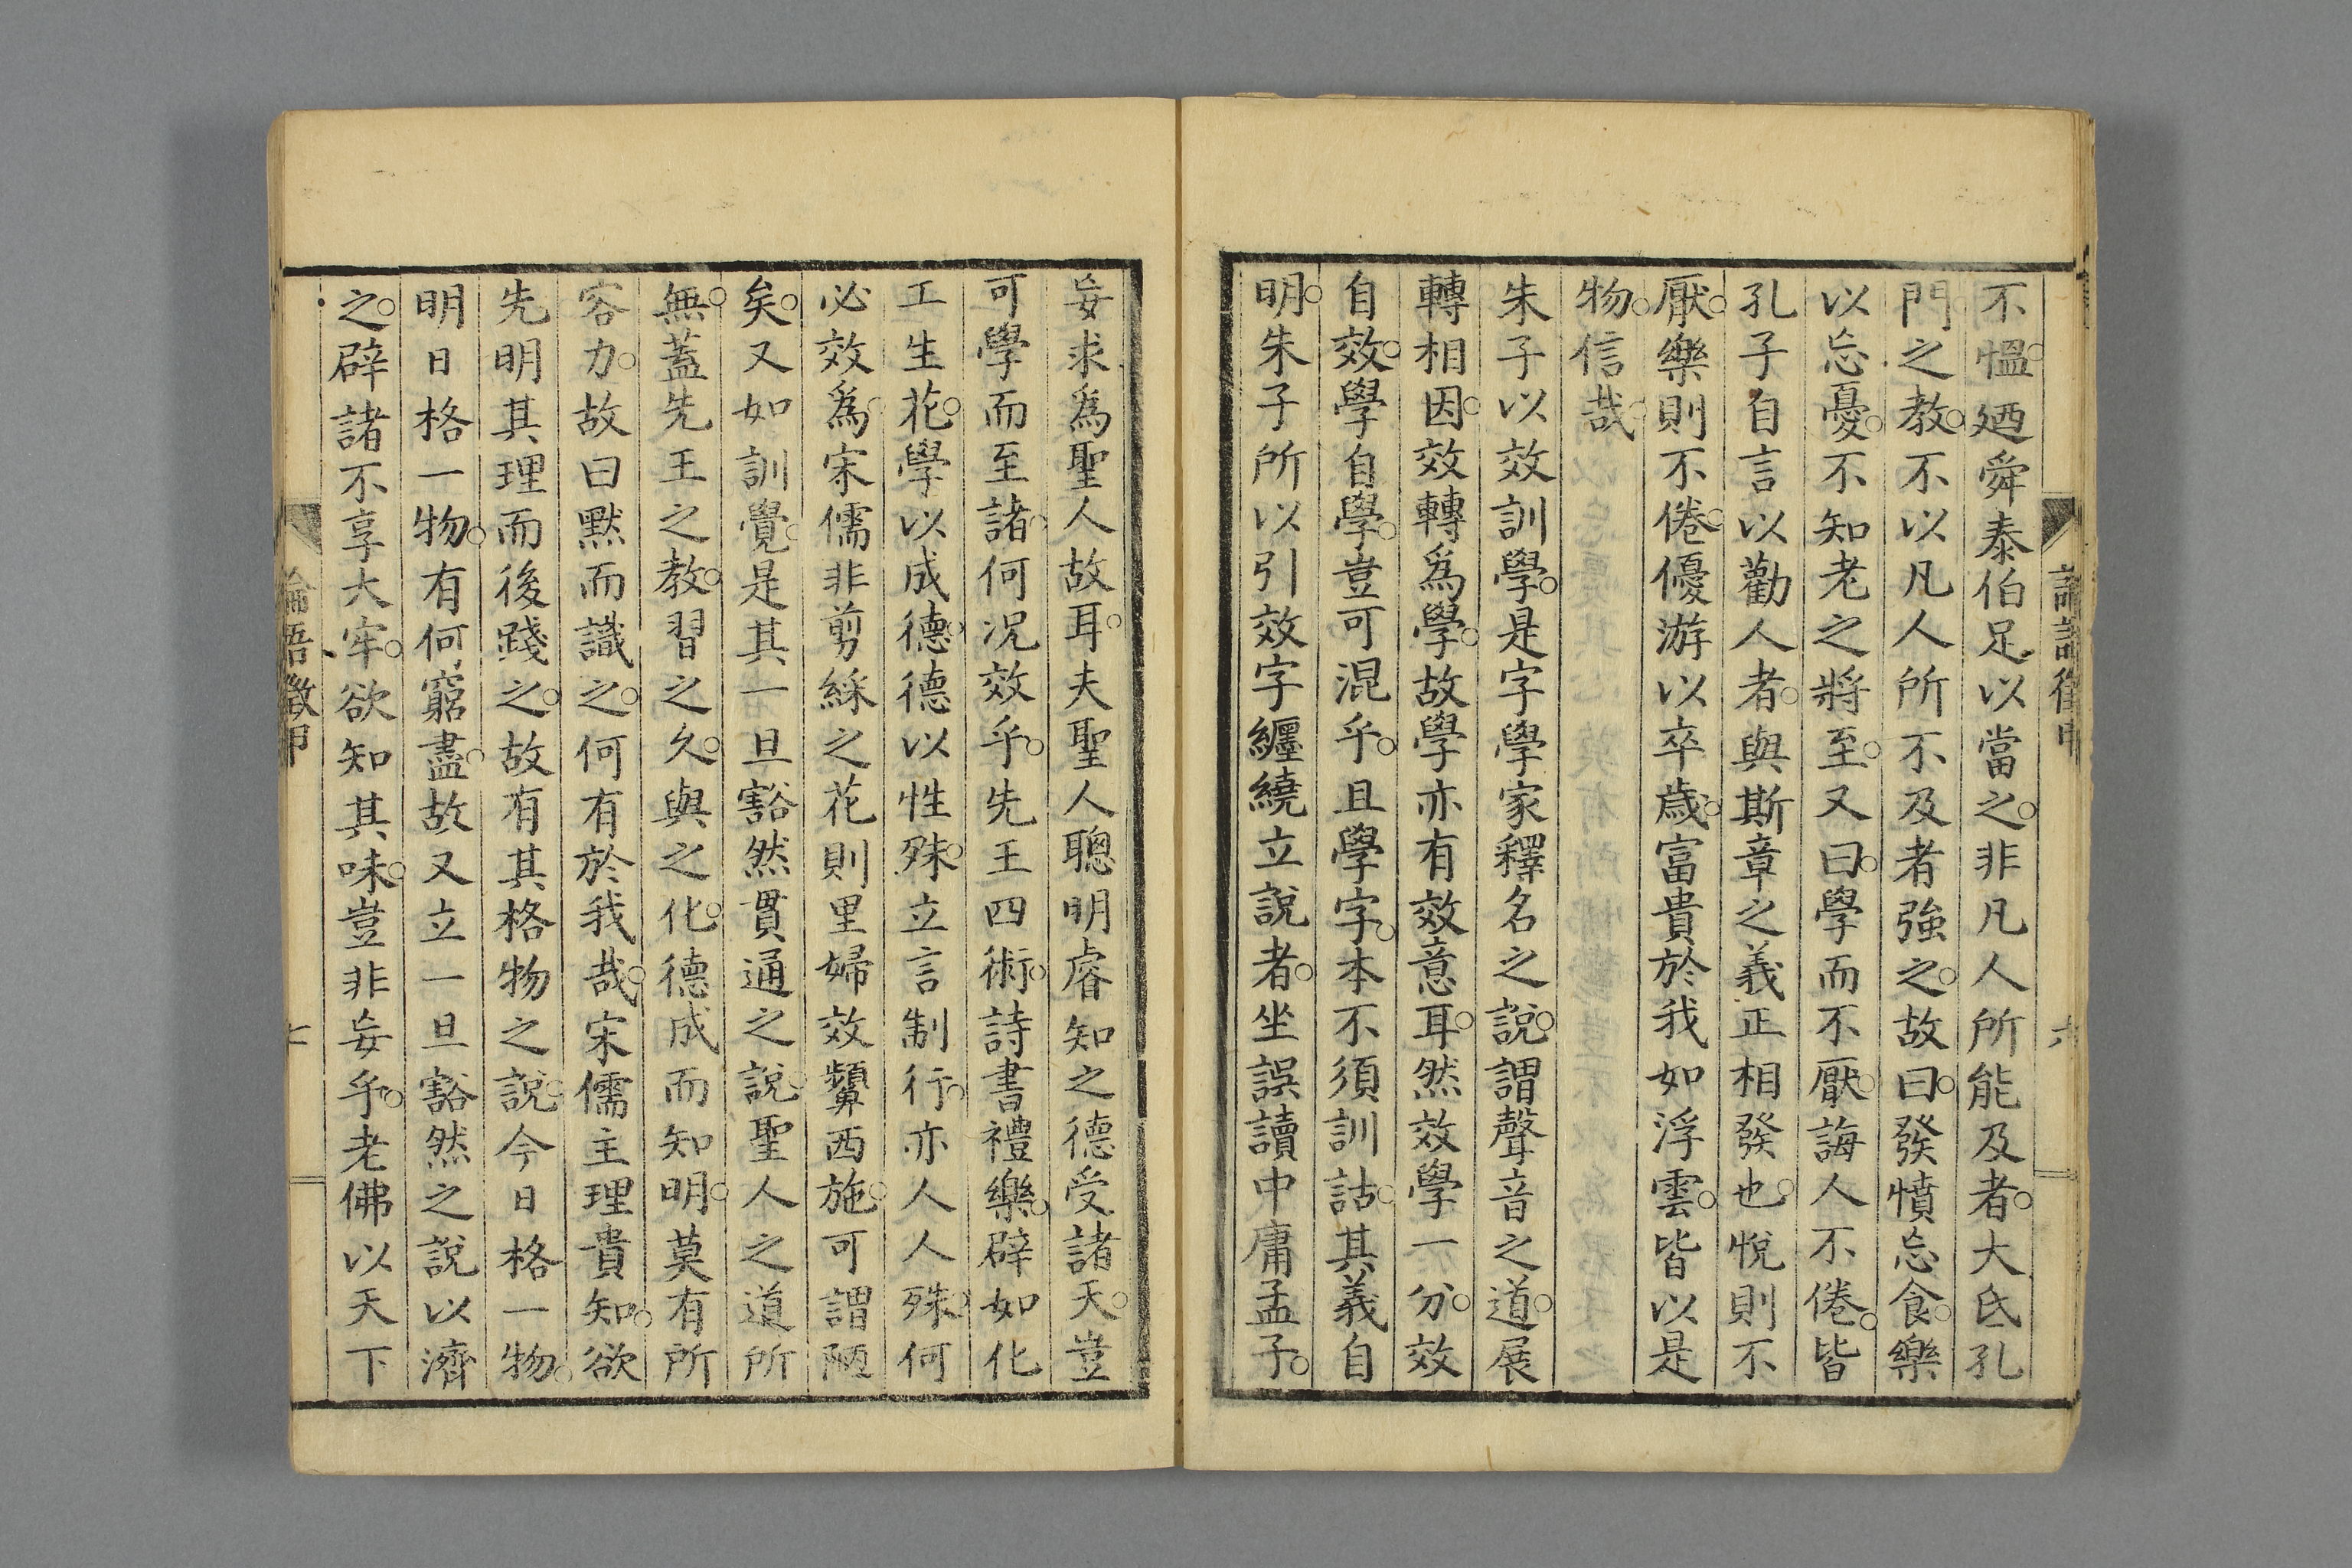 論語徵甲
六
不慍。廼舜泰伯足以當之。非凡人所能及者。大氐孔
門之教。不以凡人所不及者強之。故曰。發憤忘食。樂
以忘憂。不知老之將至。又曰。學而不厭。誨人不倦。皆
孔子自言以勸人者。與斯章之義正相發也。悅則不
厭。樂則不倦。優游以卒歲。富貴於我如浮雲。皆以是
物。信哉。
朱子以效訓學。是字學家釋名之說。謂聲音之道。展
轉相因。效轉爲學。故學亦有效意耳。然效學一分。效
自效。學自學。豈可混乎。且學字。本不須訓詁。其義自
明。朱子所以引效字纏繞立說者。坐誤讀中庸孟子。
妄求爲聖人故耳。夫聖人聰明睿知之德受諸天。豈
可學而至諸。何況效乎。先王四術。詩書禮樂。辟如化
工生花。學以成德。德以性殊。立言制行。亦人人殊。何
必效爲。宋儒非剪綵之花則里婦效顰西施。可謂陋
矣。又如訓覺。是其一旦豁然貫通之說。聖人之道所
無。蓋先王之教。習之久。與之化。德成而知明。莫有所
容力。故曰默而識之。何有於我哉。宋儒主理貴知。欲
先明其理而後踐之。故有其格物之說。今日格一物。
明日格一物。有何窮盡。故又立一旦豁然之說以濟
之。辟諸不享大牢。欲知其味。豈非妄乎。老佛以天下
論語徵甲
七